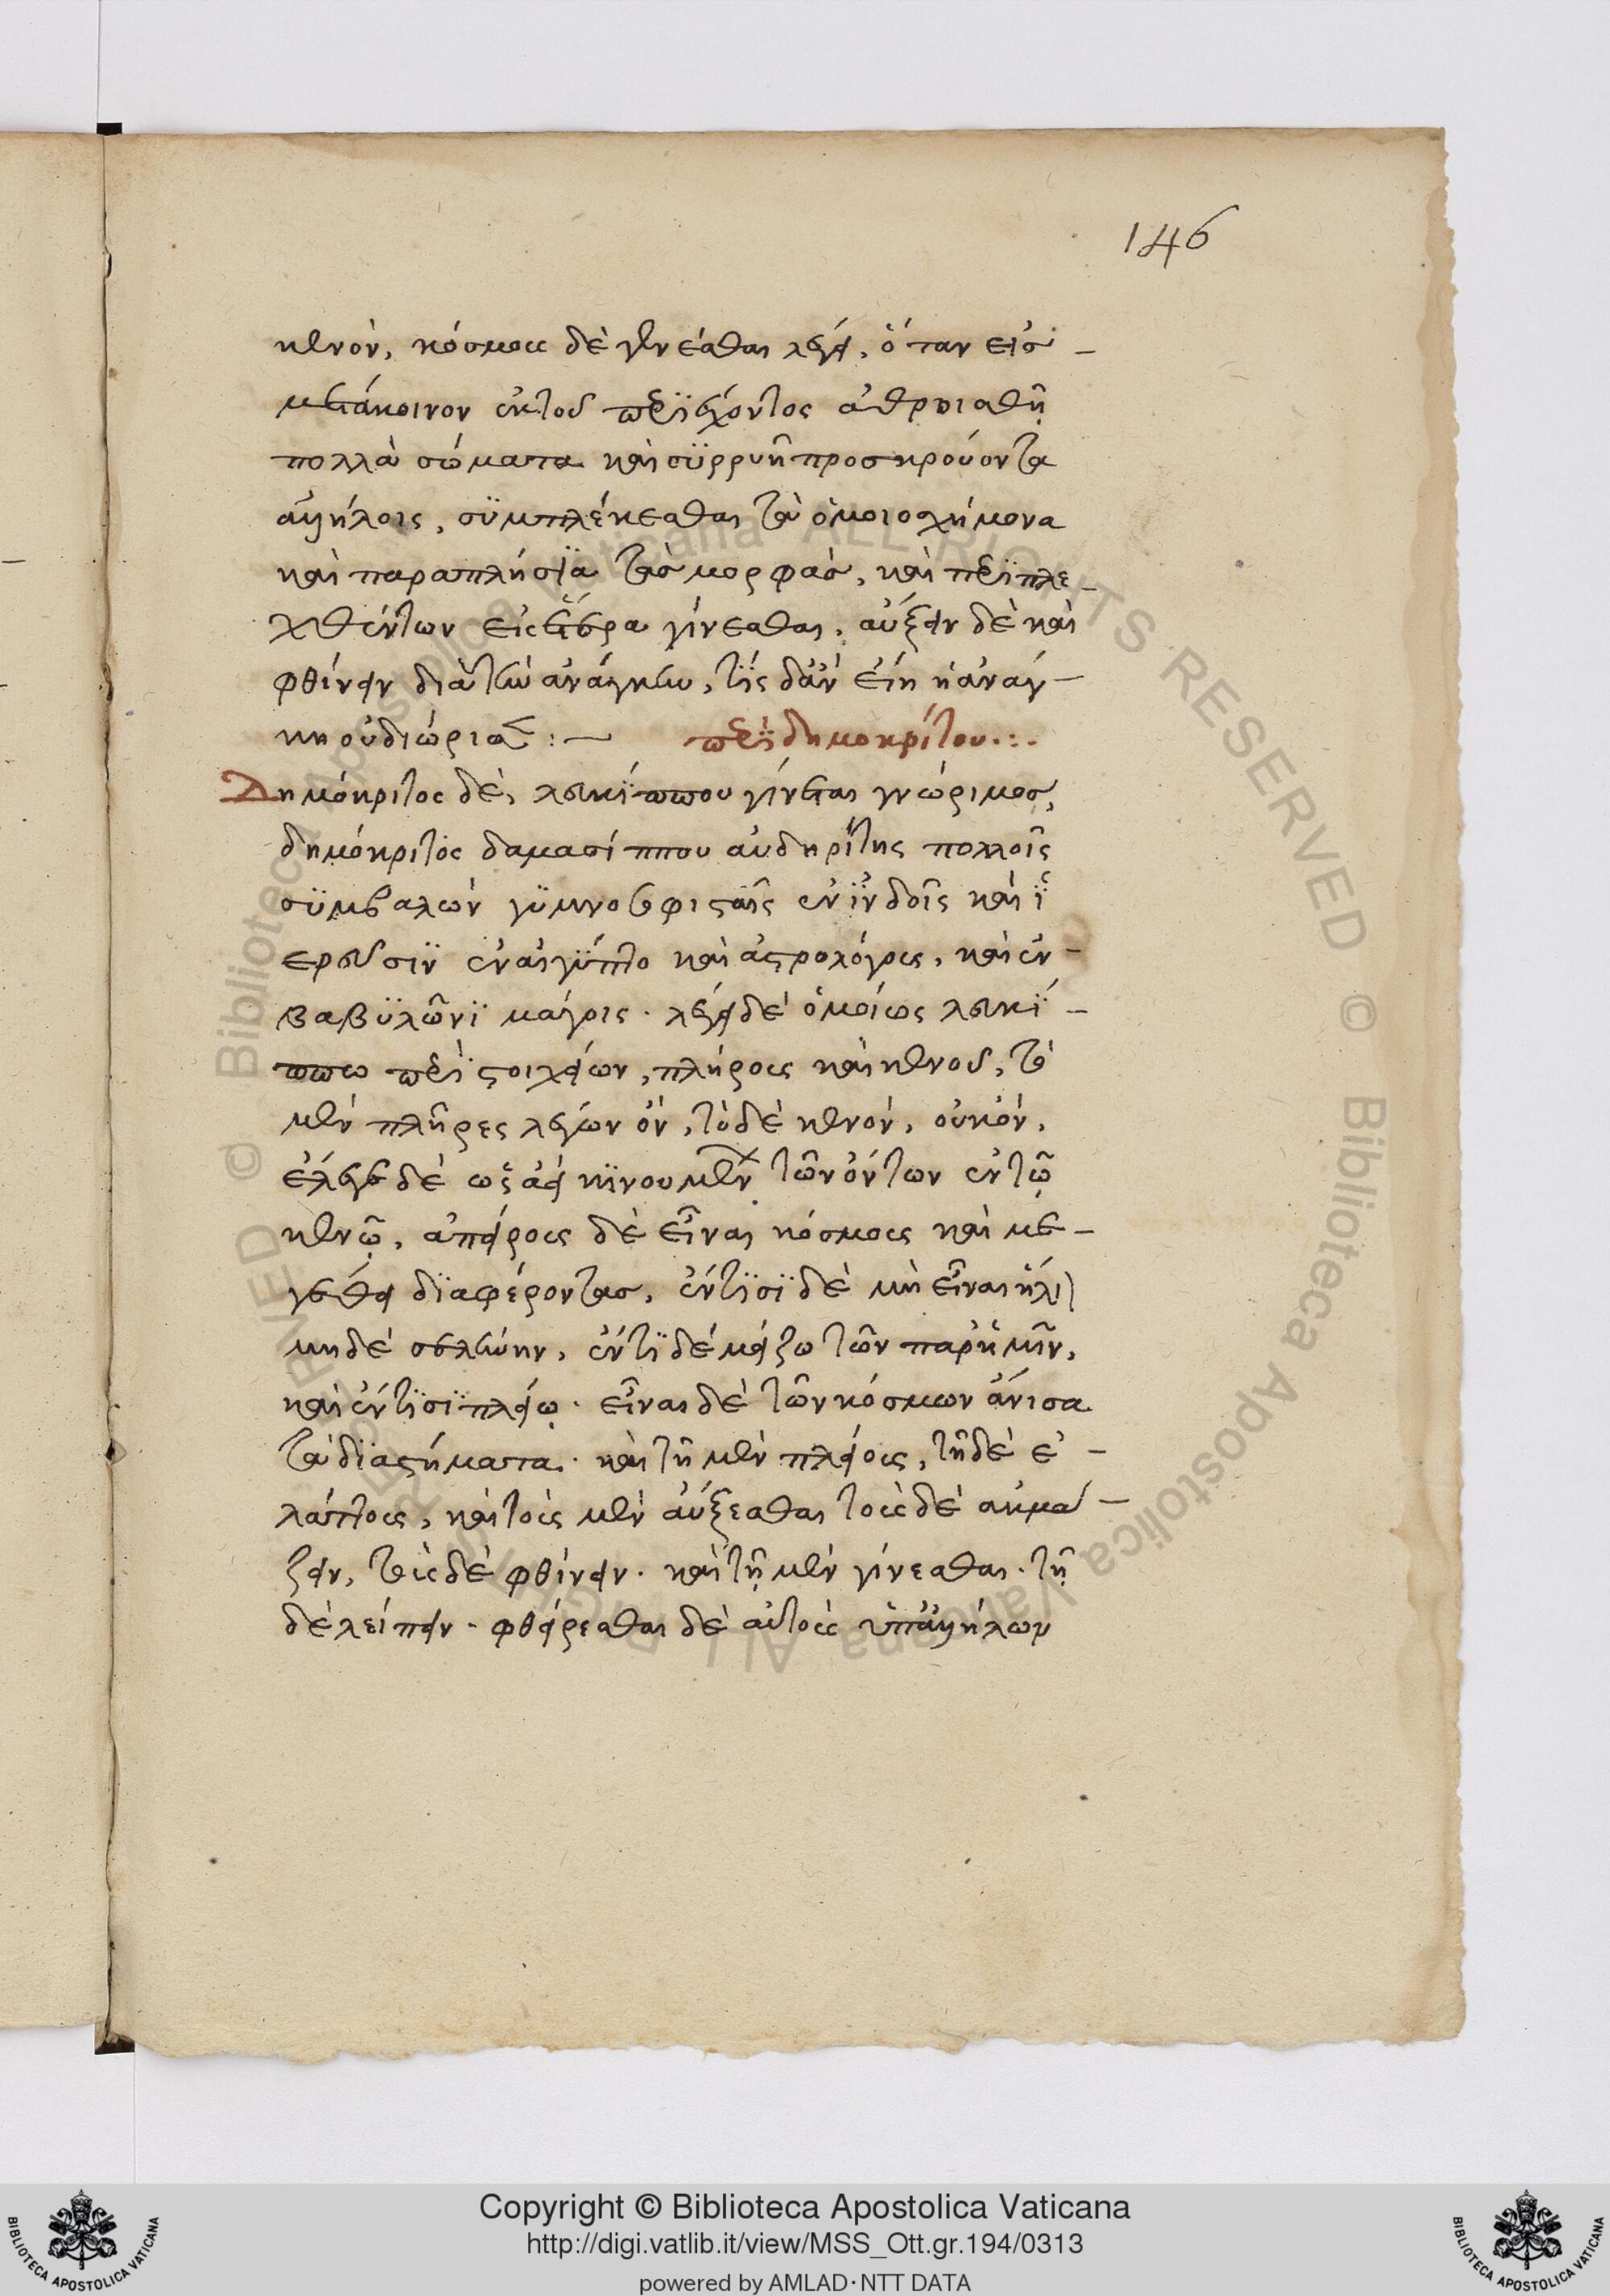 146
κενὸν, κόσμους δὲ γενέσθαι λέγει, ὅταν εἰσ
μετάκοινον ἐκτοῦ περϊέχοντος ἀθροισθῆ
πολλὰ σώματα καὶ σϋρρυῆ προσκρούοντα
ἀλλήλοις, σϋμπλέκεσθαι τὰ ὁμοιοσχήμονα
καὶ παραπλήσϊα τὰσ μορφάσ, καὶ περϊπλε
χθέντων εἰς ἕτερα γίνεσθαι, αὔξειν δὲ καὶ
φθίνειν διὰ τὴν ἀνάγκην, τΐς δἂν εἴη ἡ ἀνάγ
κη οὐ διώρισε :— περὶ δημοκρίτου.:.
Δημόκριτος δὲ, λευκΐππου γίνεται γνώριμοσ,
δημόκριτος δαμασίππου αὐδηρΐτης πολλοῖς
σϋμβαλὼν γϋμνοσοφισταῖς ἐν ϊνδοῖς καὶ ϊ
ερεῦσϊν ἐν αἰγΰπτο καὶ ἀστρολόγοις, καὶ ἐν
βαβϋλῶνϊ μάγοις. λέγει δὲ ὁμοίως λευκΐ
ππω περὶ στοιχείων, πλήρους καὶ κενοῦ, τὸ
μὲν πλῆρες λέγων ὂν, τὸ δὲ κενὸν, οὐκ ὂν,
ἔλεγε δὲ ὡς ἀεὶ κϊνουμὲν τῶν ὄντων ἐν τῶ
κενῶ, ἀπείρους δὲ εἶναι κόσμους καὶ με
γέθει δϊαφέροντασ, ἔντϊσϊ δὲ μὴ εἶναι ἥλι
μηδὲ σελήνην, ἔντϊ δὲ μείζω τῶν παρ' ἡμῖν,
καὶ ἔντϊσϊ πλείω. εἶναι δὲ τῶν κόσμων ἄνισα
τὰ δϊαστήματα. καὶ τῆ μὲν πλείους, τῆ δὲ ἐ
λάττους, καὶ τοὺς μὲν αὔξεσθαι τοὺς δὲ ακμά
ζειν, τοὺς δὲ φθίνειν. καὶ τῆ μὲν γίνεσθαι. τῆ
δὲ λείπειν. φθείρεσθαι δὲ αὐτοὺς ὑπ' ἀλλήλων
Copyright © Biblioteca Apostolica Vaticana
http://digi.vatlib.it/view/MSS_Ott.gr.194/0313
powered by AMLAD·NTT DATA